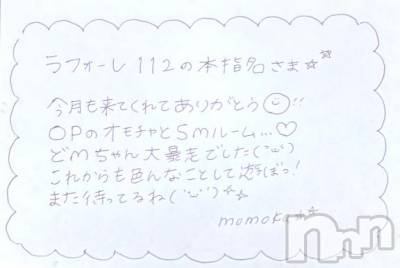 ラフォーレ112の本指名さま☆**
今月も来てくれてありがとう☺!!
OPのオモチャとSmルーム…♡
どMちゃん大暴走でした(''ω'')
これからも色んなことして遊ぼっ!
また待ってるね(''ω'')**
momoka**
nn